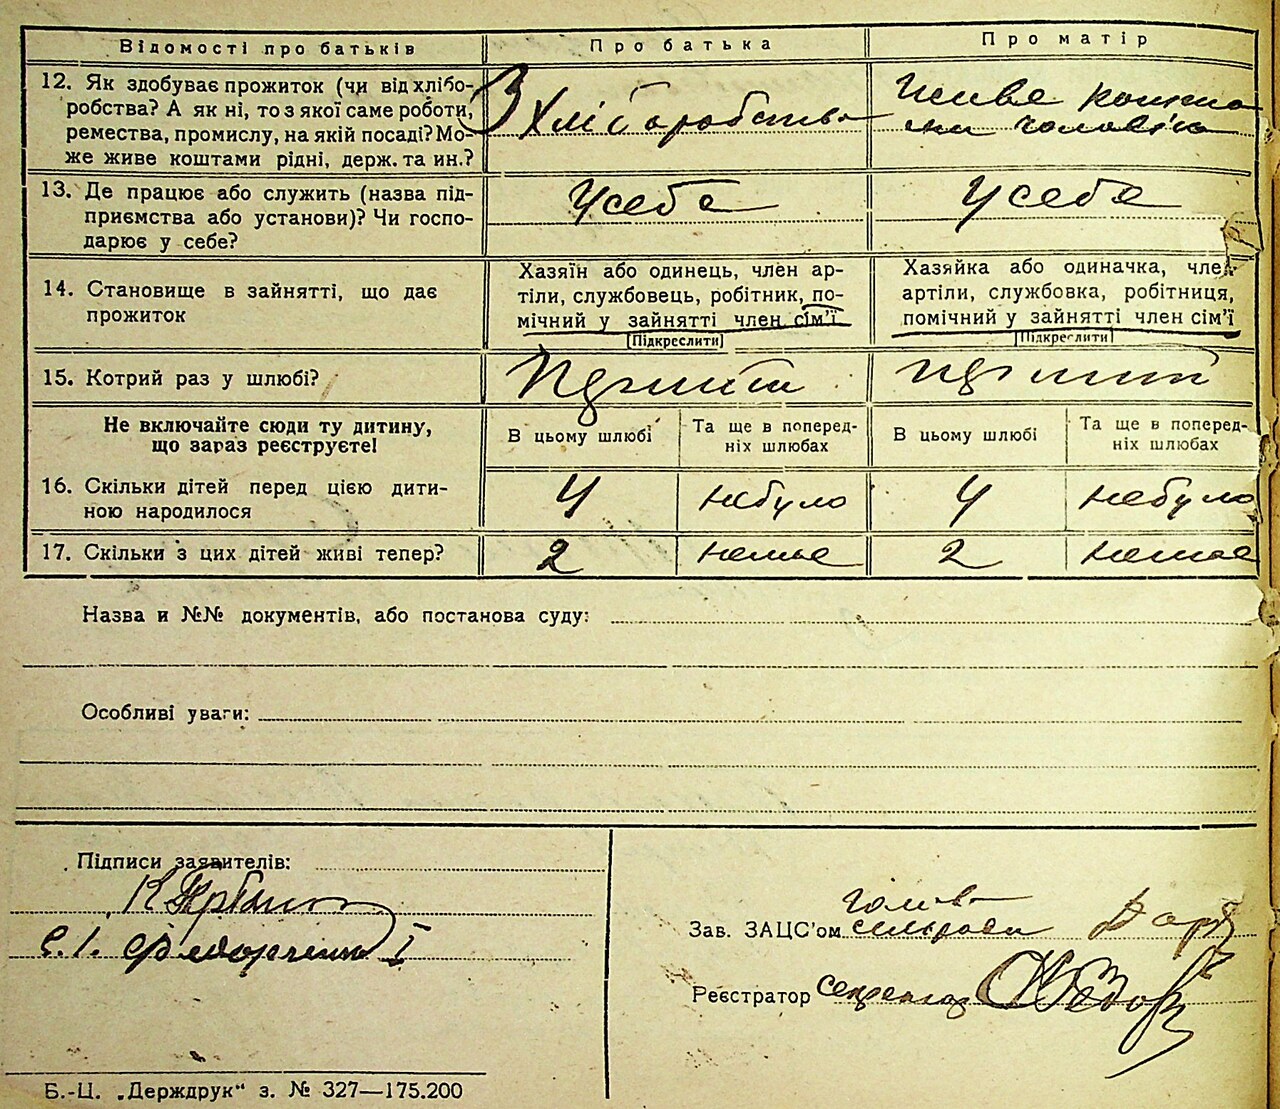 Відомості про батьків
Про батька
Про матір
12. Як здобуває прожиток (чи від хлібо-
робства? А як ні, то з якої саме роботи,
ремества, промислу, на якій посаді? Мо-
же живе коштами рідні, держ. та ин.?
З Хліборобства
Живе коштами
чоловіка
13. Де працює або служить (назва під-
приємства або установи)? Чи госпо-
дарює у себе?
У себе
У себе
14. Становище в зайнятті, що дає
прожиток
Хазяїн або одинець, член ар-
тіли, службовець, робітник, по-
мічний у зайнятті член сім'ї
[Підкреслити]
Хазяйка або одиначка, член
артіли, службовка, робітниця,
помічний у зайнятті член сім'ї
[Підкреслити]
15. Котрий раз у шлюбі?
Не включайте сюди ту дитину,
що зараз реєструєте!
В цьому шлюбі
Та ще в поперед-
ніх шлюбах
В цьому шлюбі
Та ще в поперед-
ніх шлюбах
16. Скільки дітей перед цією дити-
ною народилося
4
небуло
4
небуло
17. Скільки з цих дітей живі тепер?
2
немає
2
немає
Назва и №№ документів, або постанова суду:
Особливі уваги:
Підписи заявителів:
Зав. ЗАЦС'ом
голова
сільради
Реєстратор секретар
Б.-Ц. „Держдрук" з. № 327—175.200